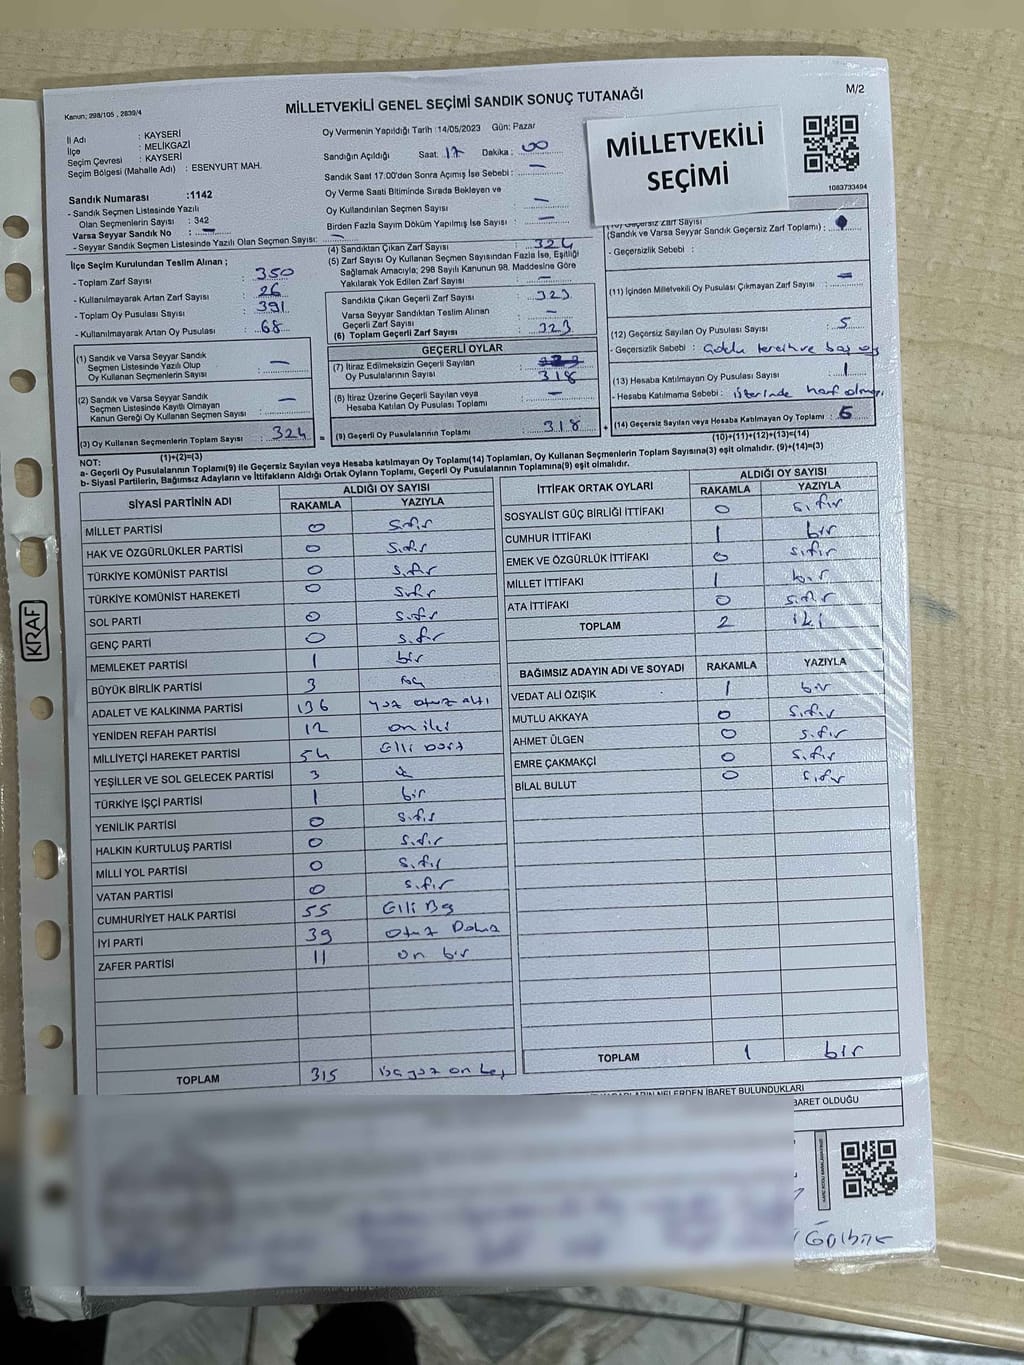 Kanun; 298/105 , 2839/4
MİLLETVEKİLİ GENEL SEÇİMİ SANDIK SONUÇ TUTANAĞI
M/2
İl Adı : KAYSERİ
İlçe : MELİKGAZİ
Seçim Çevresi : KAYSERİ
Seçim Bölgesi (Mahalle Adı) : ESENYURT MAH.
Sandık Numarası :1142
- Sandık Seçmen Listesinde Yazılı
Olan Seçmenlerin Sayısı : 342
Varsa Seyyar Sandık No : —
- Seyyar Sandık Seçmen Listesinde Yazılı Olan Seçmen Sayısı: —
Oy Vermenin Yapıldığı Tarih :14/05/2023 Gün: Pazar
Sandığın Açıldığı Saat: 17 Dakika : 00
Sandık Saat 17:00'den Sonra Açımış İse Sebebi : —
Oy Verme Saati Bitiminde Sırada Bekleyen ve
Oy Kullandırılan Seçmen Sayısı —
Birden Fazla Sayım Döküm Yapılmış İse Sayısı : —
MİLLETVEKİLİ
SEÇİMİ
1083733494
İlçe Seçim Kurulundan Teslim Alınan ;
- Toplam Zarf Sayısı : 350
- Kullanılmayarak Artan Zarf Sayısı : 26
- Toplam Oy Pusulası Sayısı : 391
- Kullanılmayarak Artan Oy Pusulası : 68
(1) Sandık ve Varsa Seyyar Sandık
Seçmen Listesinde Yazılı Olup
Oy Kullanan Seçmenlerin Sayısı : —
(2) Sandık ve Varsa Seyyar Sandık
Seçmen Listesinde Kayıtlı Olmayan
Kanun Gereği Oy Kullanan Seçmen Sayısı : —
(3) Oy Kullanan Seçmenlerin Toplam Sayısı : 324 =
(1)+(2)=(3)
(4) Sandıktan Çıkan Zarf Sayısı : 324
(5) Zarf Sayısı Oy Kullanan Seçmen Sayısından Fazla İse, Eşitliği
Sağlamak Amacıyla; 298 Sayılı Kanunun 98. Maddesine Göre
Yakılarak Yok Edilen Zarf Sayısı : —
Sandıkta Çıkan Geçerli Zarf Sayısı : 323
Varsa Seyyar Sandıktan Teslim Alınan
Geçerli Zarf Sayısı : —
(6) Toplam Geçerli Zarf Sayısı : 323
GEÇERLİ OYLAR
(7) İtiraz Edilmeksizin Geçerli Sayılan
Oy Pusulalarının Sayısı : 318
(8) İtiraz Üzerine Geçerli Sayılan veya
Hesaba Katılan Oy Pusulası Toplamı : —
(9) Geçerli Oy Pusulalarının Toplamı : 318 +
(10) Geçersiz Zarf Sayısı
(Sandık ve Varsa Seyyar Sandık Geçersiz Zarf Toplamı) :
- Geçersizlik Sebebi :
(11) İçinden Milletvekili Oy Pusulası Çıkmayan Zarf Sayısı : —
(12) Geçersiz Sayılan Oy Pusulası Sayısı : 5
- Geçersizlik Sebebi : Çoklu tercih ve boş oy
(13) Hesaba Katılmayan Oy Pusulası Sayısı : 1
- Hesaba Katılmama Sebebi : üzerinde harf olması
(14) Geçersiz Sayılan veya Hesaba Katılmayan Oy Toplamı :
(10)+(11)+(12)+(13)=(14)
NOT:
a- Geçerli Oy Pusulalarının Toplamı(9) ile Geçersiz Sayılan veya Hesaba katılmayan Oy Toplamı(14) Toplamları, Oy Kullanan Seçmenlerin Toplam Sayısına(3) eşit olmalıdır. (9)+(14)=(3)
b- Siyasi Partilerin, Bağımsız Adayların ve İttifakların Aldığı Ortak Oyların Toplamı, Geçerli Oy Pusulalarının Toplamına(9) eşit olmalıdır.
SİYASİ PARTİNİN ADI ALDIĞI OY SAYISI
RAKAMLA YAZIYLA
MİLLET PARTİSİ 0 sıfır
HAK VE ÖZGÜRLÜKLER PARTİSİ 0 sıfır
TÜRKİYE KOMÜNİST PARTİSİ 0 sıfır
TÜRKİYE KOMÜNİST HAREKETİ 0 sıfır
SOL PARTİ 0 sıfır
GENÇ PARTİ 0 sıfır
MEMLEKET PARTİSİ 1 bir
BÜYÜK BİRLİK PARTİSİ 3 üç
ADALET VE KALKINMA PARTİSİ 136 yüz otuz altı
YENİDEN REFAH PARTİSİ 12 on iki
MİLLİYETÇİ HAREKET PARTİSİ 54 Elli dört
YEŞİLLER VE SOL GELECEK PARTİSİ 3 üç
TÜRKİYE İŞÇİ PARTİSİ 1 bir
YENİLİK PARTİSİ 0 sıfır
HALKIN KURTULUŞ PARTİSİ 0 sıfır
MİLLİ YOL PARTİSİ 0 sıfır
VATAN PARTİSİ 0 sıfır
CUMHURİYET HALK PARTİSİ 55 Elli Beş
İYİ PARTİ 39 otuz Dokuz
ZAFER PARTİSİ 11 on bir
TOPLAM 315 üç yüz on beş
İTTİFAK ORTAK OYLARI ALDIĞI OY SAYISI
RAKAMLA YAZIYLA
SOSYALİST GÜÇ BİRLİĞİ İTTİFAKI 0 sıfır
CUMHUR İTTİFAKI 1 bir
EMEK VE ÖZGÜRLÜK İTTİFAKI 0 sıfır
MİLLET İTTİFAKI 1 bir
ATA İTTİFAKI 0 sıfır
TOPLAM 2 iki
BAĞIMSIZ ADAYIN ADI VE SOYADI RAKAMLA YAZIYLA
VEDAT ALİ ÖZIŞIK 1 bir
MUTLU AKKAYA 0 sıfır
AHMET ÜLGEN 0 sıfır
EMRE ÇAKMAKÇİ 0 sıfır
BİLAL BULUT 0 sıfır
TOPLAM 1 bir
NELERDEN İBARET BULUNDUKLARI
BARET OLDUĞU
KRAF